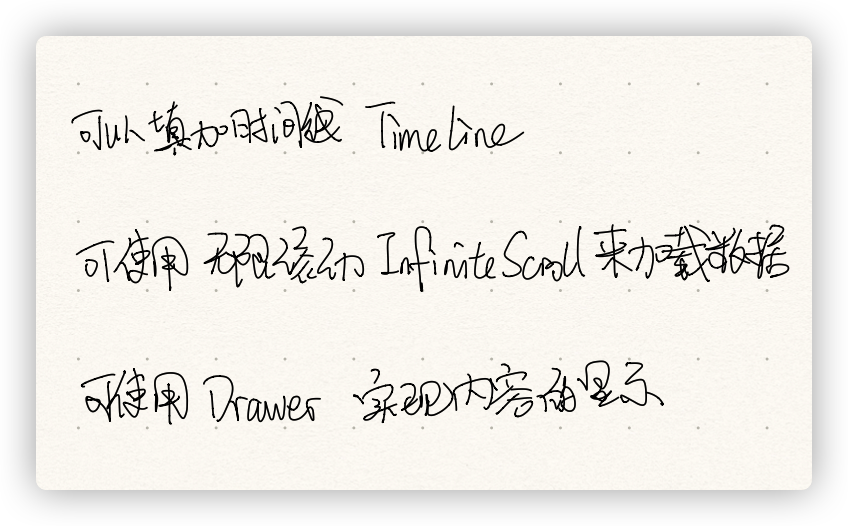 可以填加时间线 Timeline
可使用 无限滚动 InfiniteScroll 来加载数据
可使用 Drawer 实现内容的显示